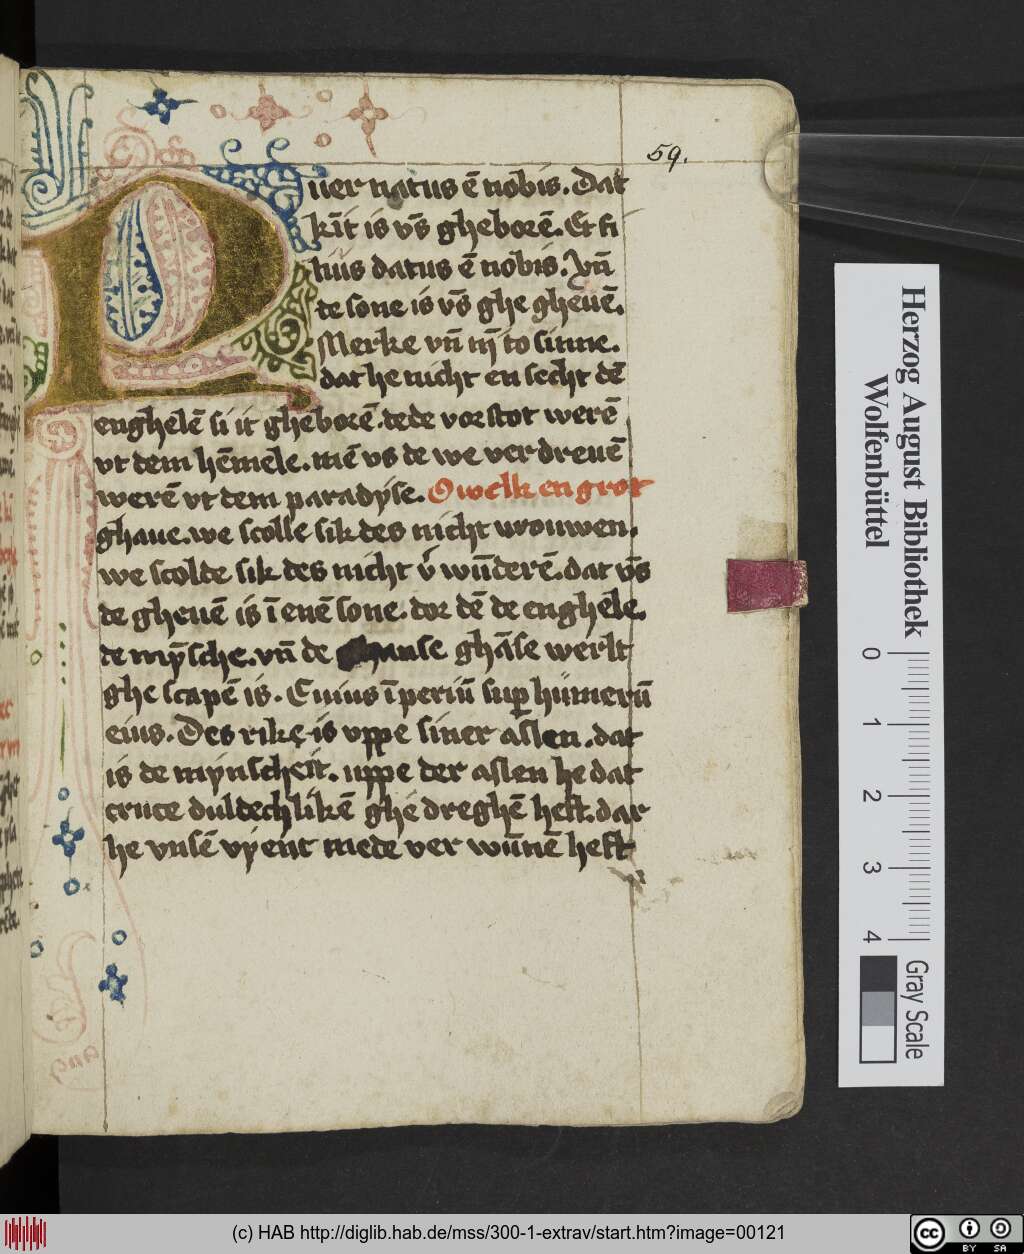 59.
Puer natus ē nobis. Dat
kīt is vn̄s gheborē. Et fi
lius datus ē nobis. Vn̄
te sone is vn̄s ghe gheuē.
Merke vn̄ nȳ to sinne.
dat he nicht en secht dē
enghelē si it gheborē. dede vorstot werē
vt dem hēmele. mē vs de we verdreuē
werē vt dem paradyse. O welk en grot
ghaue. we scolle sik des nicht vrouwen.
we scolde sik des nicht v̓ wūderē. dat vn̄s
de gheuē is ī enē sone. dor dē de enghele.
de mȳsche. vn̄ de ghāse werlt
ghe scapē is. Cuius īperiū sup humerū
eius. Des rike is vppe siner aslen. dat
is de mynscheit. uppe der aslen he dat
cruce duldechlikē ghe dreghē heft. dar
he vnsē vyent mede ver wūnē heft
Herzog August Bibliothek
Wolfenbüttel
0 1 2 3 4
Gray Scale
(c) HAB http://diglib.hab.de/mss/300-1-extrav/start.htm?image=00121
cc BY SA